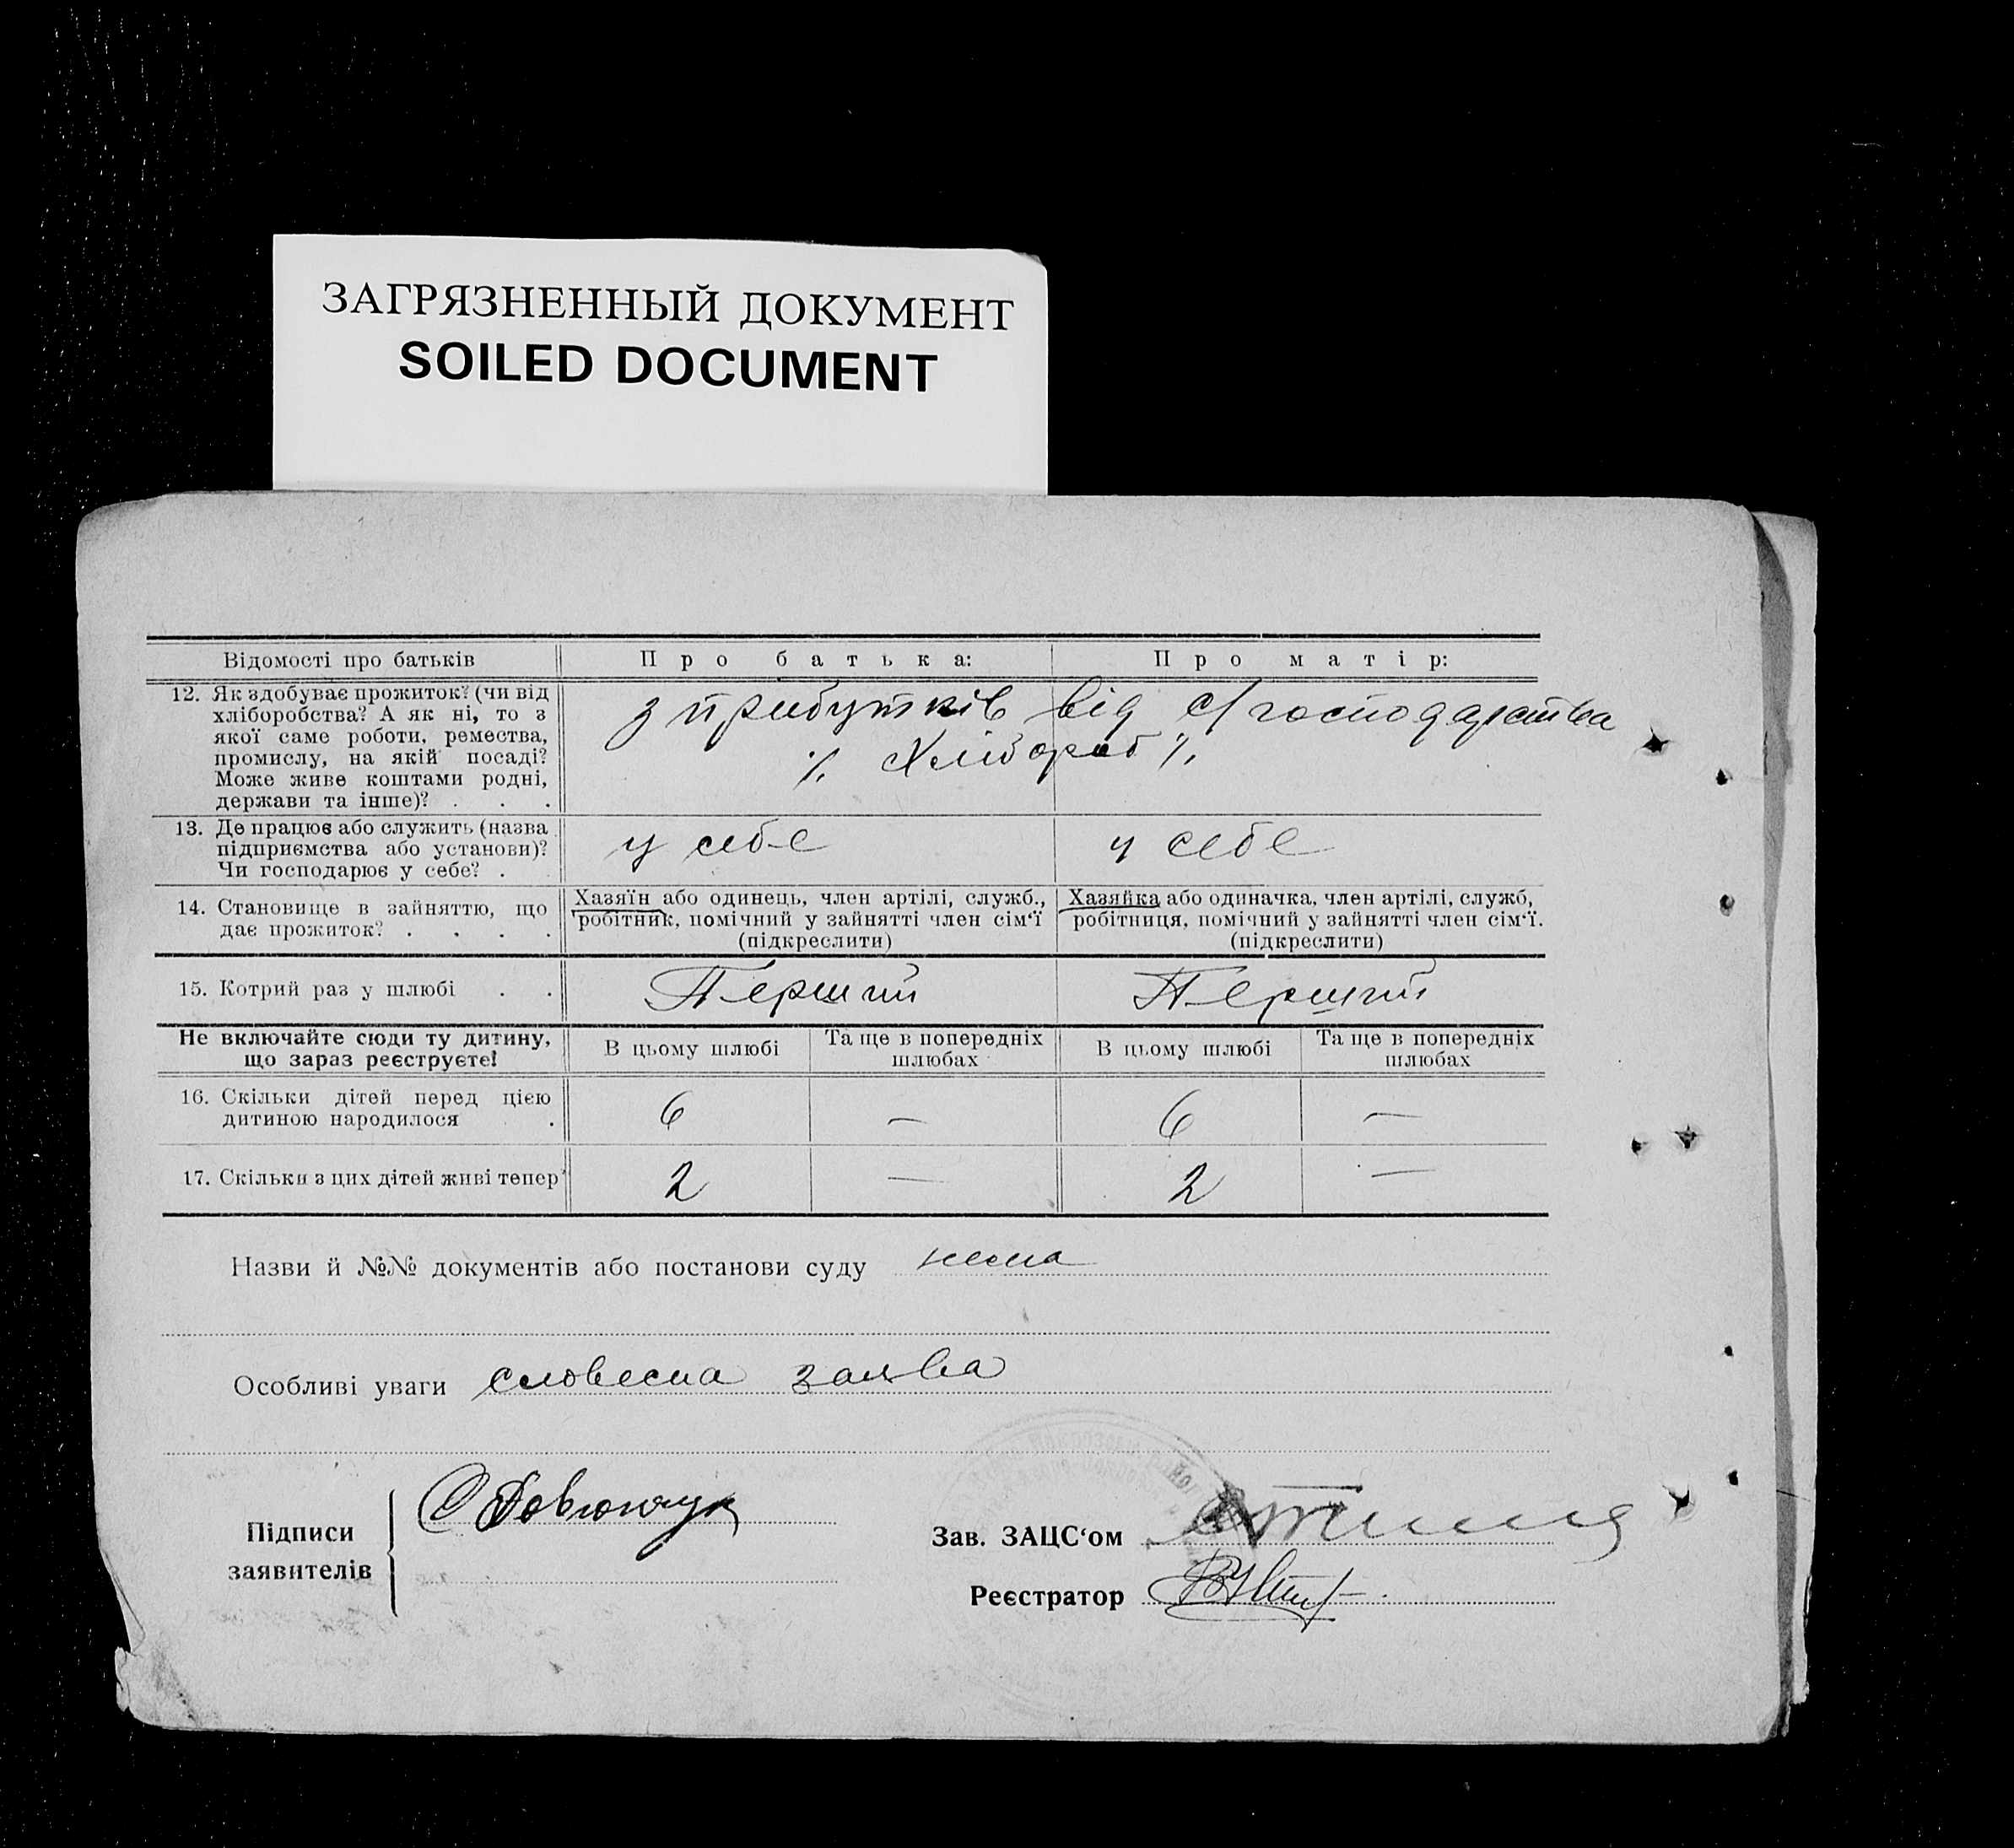 ЗАГРЯЗНЕННЫЙ ДОКУМЕНТ
SOILED DOCUMENT
Відомості про батьків
Про батька:
Про матір:
12. Як здобуває прожиток? (чи від
хліборобства? А як ні, то з
якої саме роботи, ремества,
промислу, на якій посаді?
Може живе коштами родні,
держави та інше)? . . .
з прибутків від с/господарства
% Хлібороб %
13. Де працює або служить (назва
підприємства або установи)?
Чи господарює у себе? .
у себе
у себе
14. Становище в зайняттю, що
дає прожиток? . . . .
Хазяїн або одинець, член артілі, служб.,
робітник, помічний у зайнятті член сім'ї
(підкреслити)
Хазяйка або одиначка, член артілі, служб,
робітниця, помічний у зайнятті член сім'ї.
(підкреслити)
15. Котрий раз у шлюбі . .
Перший
Перший
Не включайте сюди ту дитину,
що зараз реєструєте!
В цьому шлюбі
Та ще в попередніх
шлюбах
В цьому шлюбі
Та ще в попередніх
шлюбах
16. Скільки дітей перед цією
дитиною народилося .
6
—
6
—
17. Скільки з цих дітей живі тепер?
2
—
2
—
Назви й №№ документів або постанови суду нема
Особливі уваги словесна заява
Підписи
заявителів
Зав. ЗАЦС'ом
Реєстратор